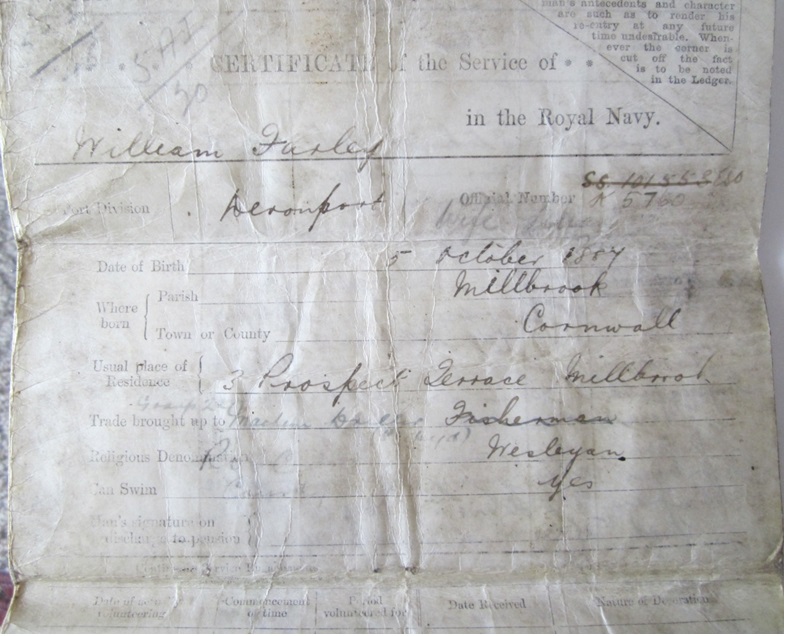 man's antecedents and character
are such as to render his
re-entry at any future
time undesirable. When-
ever the corner is
cut off the fact
is to be noted
in the Ledger.
CERTIFICATE of the Service of
in the Royal Navy.
William Farley
Port Division Devonport Official Number
K 5760
Wife
Date of Birth 5 October 1887
Where born Parish Millbrook
Town or County Cornwall
Usual place of
Residence 3 Prospect Terrace Millbrook
Trade brought up to Fisherman
Religious Denomination Wesleyan
Can Swim Yes
Man's signature on
discharge to pension
Date of
volunteering
Commencement
of time
Period
volunteered for
Date Received
Nature of Decoration